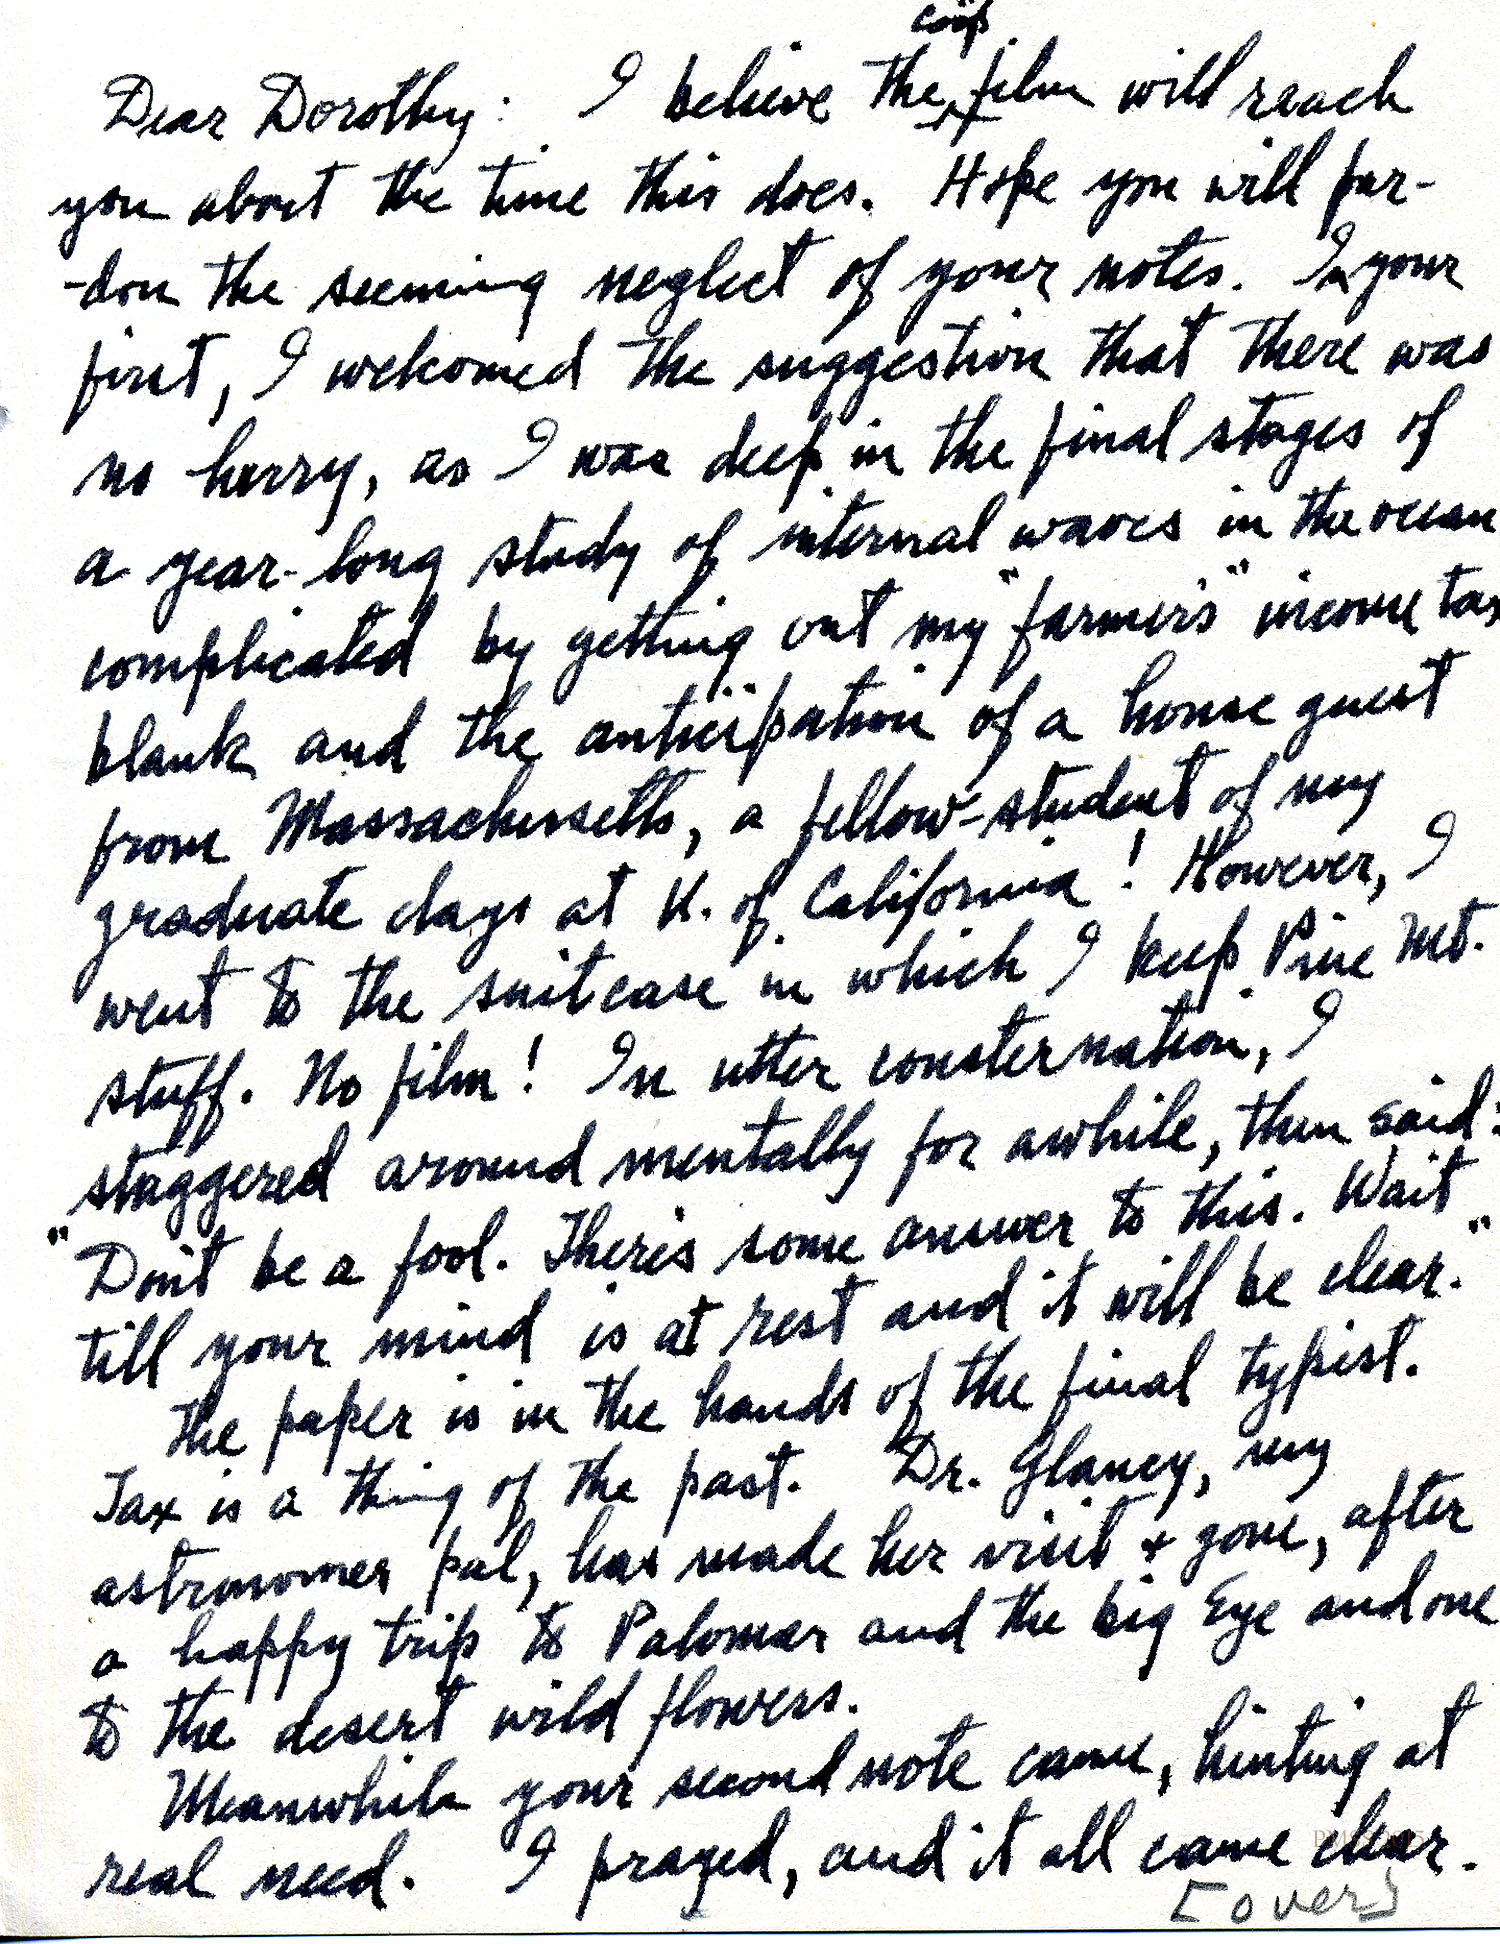 Dear Dorothy: I believe the film will reach
you about the time this does. Hope you will par-
-don the seeming neglect of your notes. In your
first, I welcomed the suggestion that there was
no hurry, as I was deep in the final stages of
a year-long study of internal waves in the ocean
complicated by getting out my "farmer's" income tax
blank and the anticipation of a house guest
from Massachusetts, a fellow-student of my
graduate days at U. of California! However, I
went to the suitcase in which I keep Pine Mt.
stuff. No film! In utter consternation, I
staggered around mentally for awhile, then said:
"Don't be a fool. There's some answer to this. Wait
till your mind is at rest and it will be clear."
The paper is in the hands of the final typist.
Tax is a thing of the past. Dr. Glancy, my
astronomer pal, has made her visit + gone, after
a happy trip to Palomar and the big Eye and one
to the desert wild flowers.
Meanwhile your second note came, hinting at
real need. I prayed, and it all came clear.
[over]